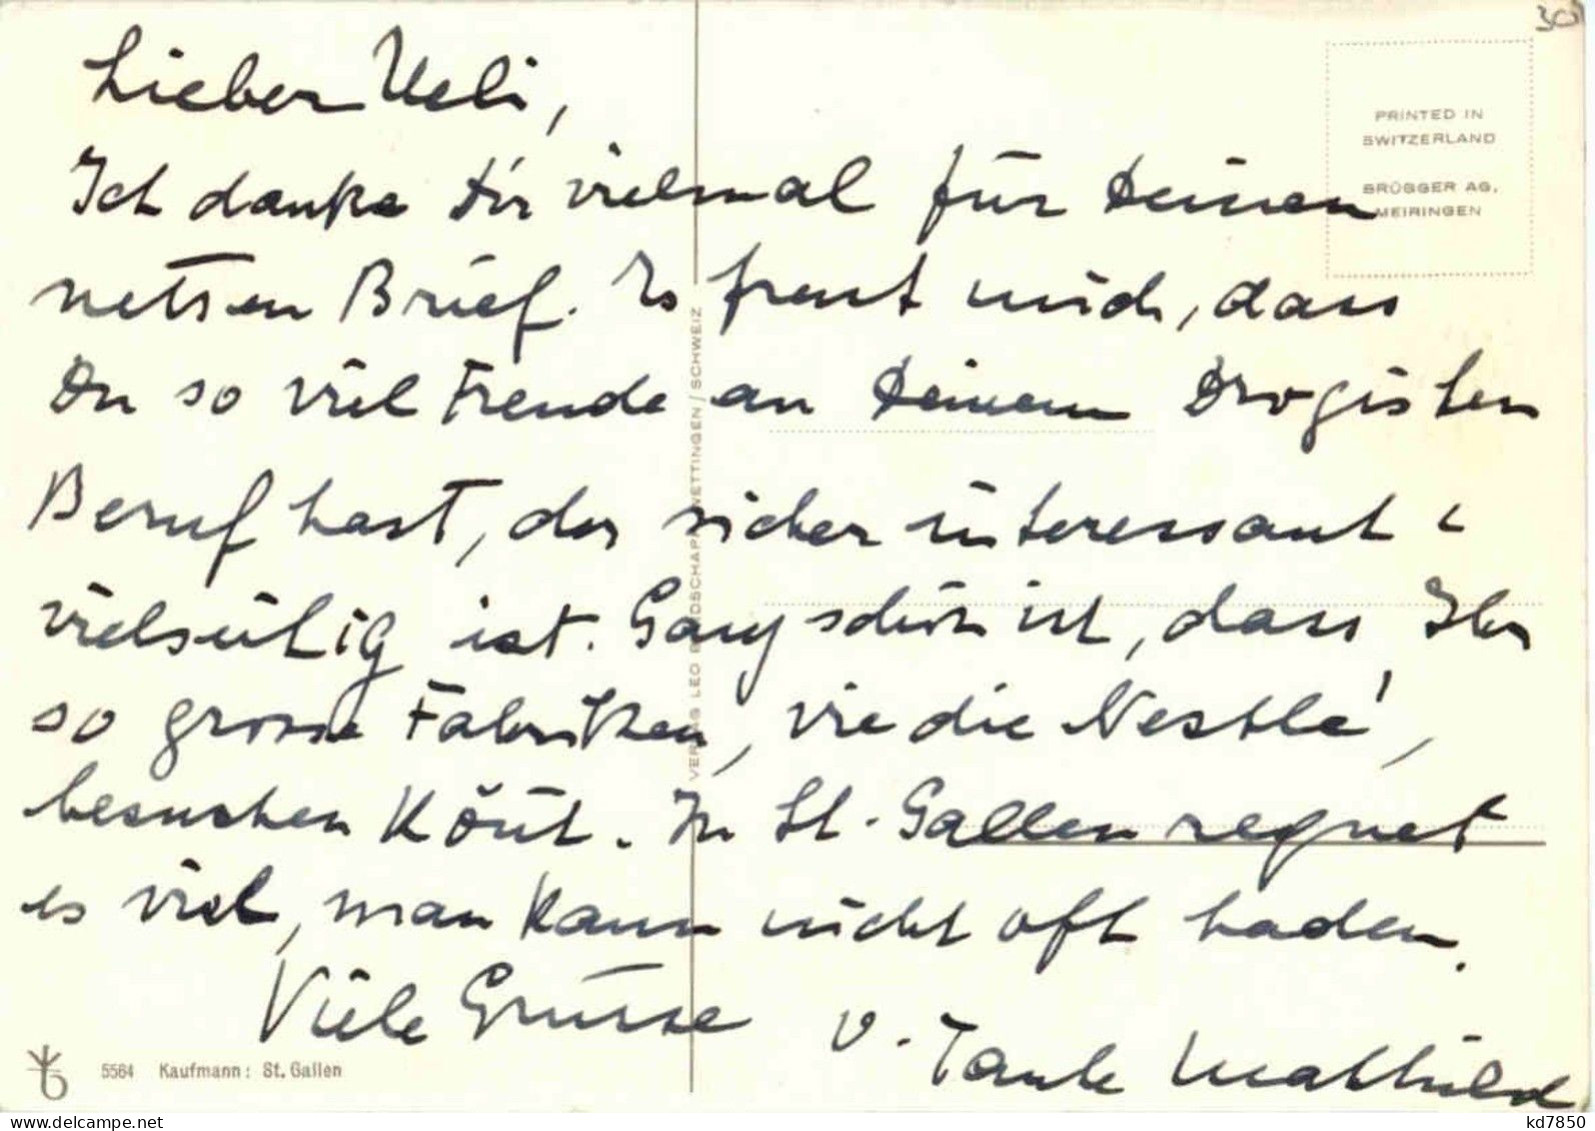 30
Lieber Ueli,
PRINTED IN
SWITZERLAND
BRÜGGER AG,
MEIRINGEN
Ich danke Dir vielmal für Deinen
netten Brief. Es freut mich, dass
Du so viel Freude an Deinem Drogisten
Beruf hast, der sicher interessant &
vielseitig ist. Ganz schön ist, dass Ihr
so grosse Fabriken, wie die Nestlé,
besuchen könnt. In St. Gallen regnet
es viel, man kann nicht oft baden.
Viele Grüsse v. Tante Mathild
VERLAG LEO BILDSCHAPP, WETTINGEN / SCHWEIZ
5564 Kaufmann: St. Gallen
kd7850